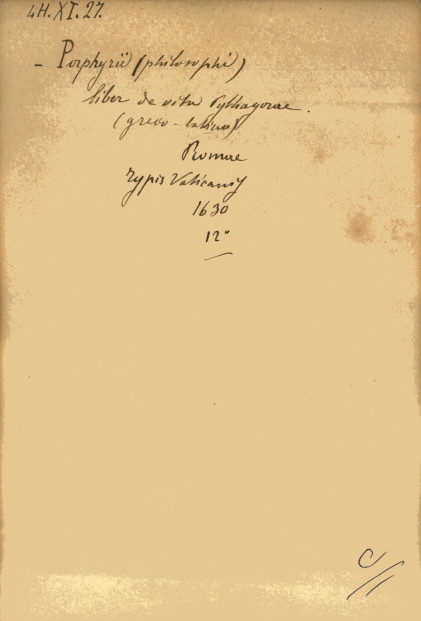 4H.XI.27.
- Porphyrii (philosophi)
liber de vita Pythagorae.
(greco-latino)
Romae
Typis Vaticanis
1630
12°